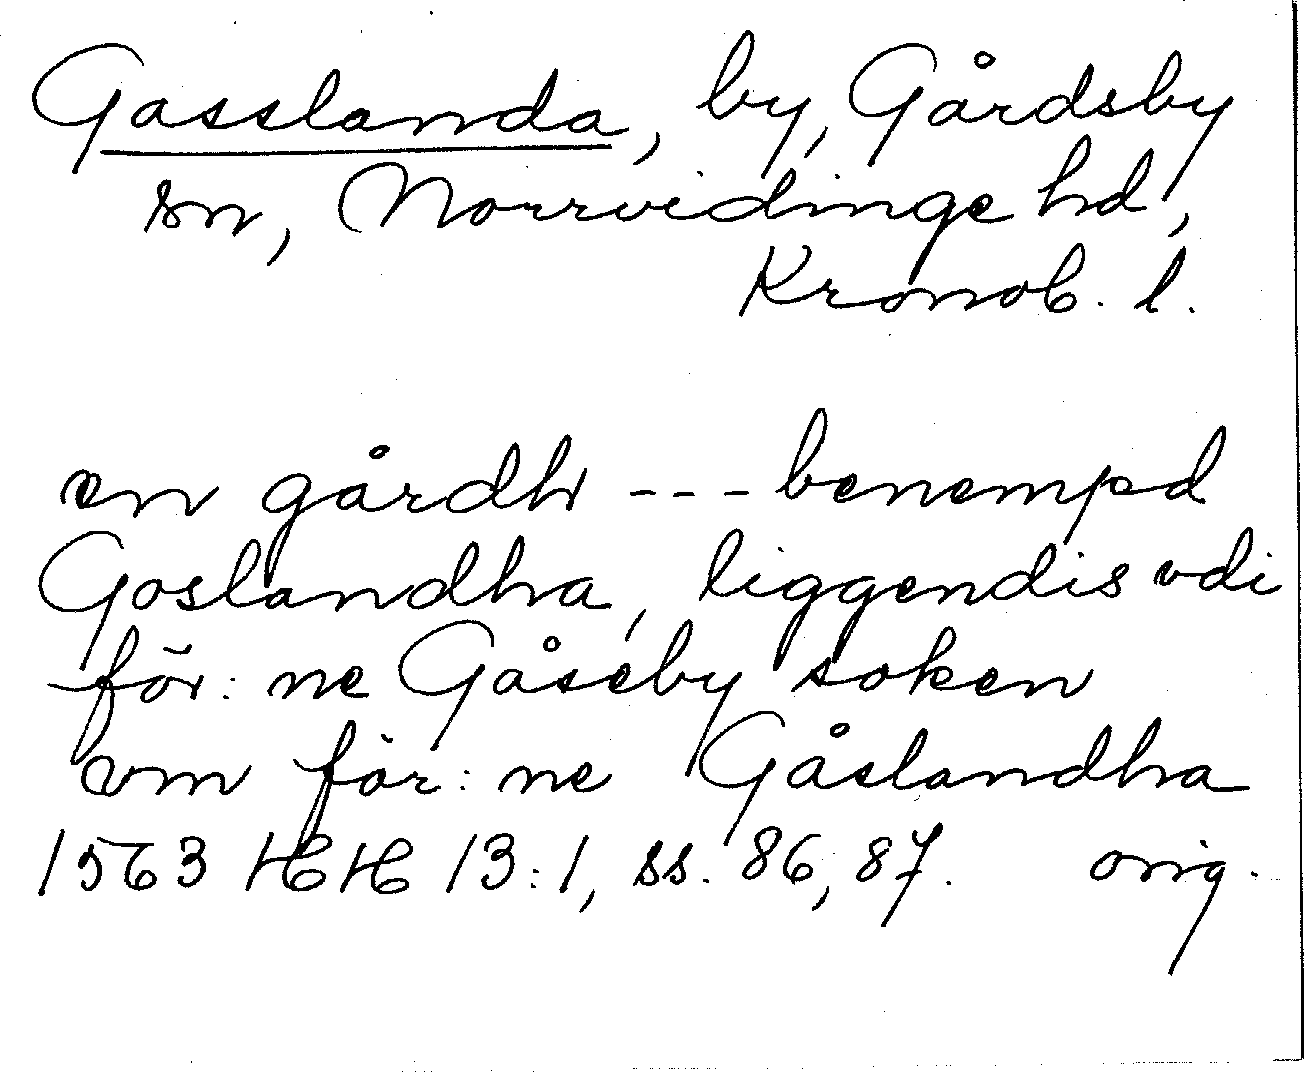 Gasslanda, by, Gårdsby
sn, Norrvidinge hd,
Kronob. l.
en gårdh --- benempd
Goslandha, liggendis vdi
för: ne Gåseby soken
vm för: ne Gåslandha
1563 HH 13:1, ss. 86, 87. orig.